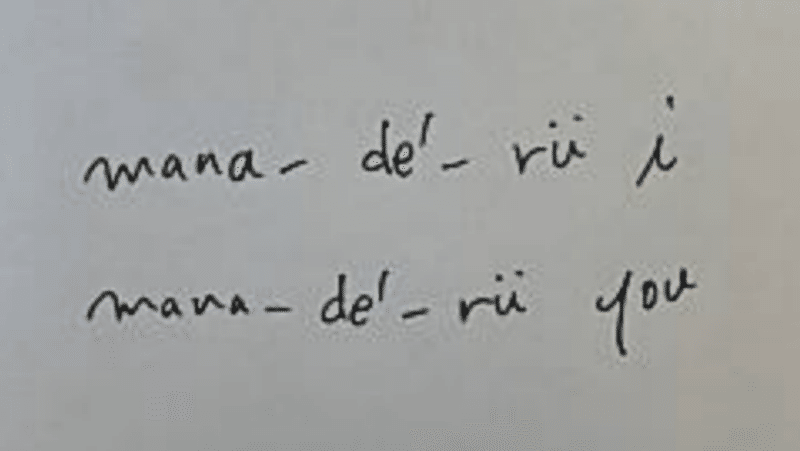 mana- de'- rii i
mana- de'- rii you